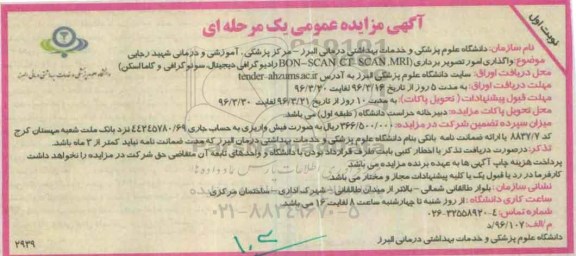 نوبت اول
آگهی مزایده عمومی یک مرحله ای
نام سازمان: دانشگاه علوم پزشکی و خدمات بهداشتی درمانی البرز - مرکز پزشکی، آموزشی و درمانی شهید رجایی
موضوع: واگذاری امور تصویر برداری (BON-SCAN ,CT-SCAN ,MRI رادیوگرافی دیجیتال، سونوگرافی و گامااسکن)
محل دریافت اوراق: سایت دانشگاه علوم پزشکی البرز به آدرس tender-abzums.ac.ir
مهلت دریافت اوراق: به مدت ۵ روز از تاریخ ۹۶/۳/۱۶ لغایت ۹۶/۳/۲۰
مهلت قبول پیشنهادات ( تحویل پاکات): به مدت ۱۰ روز از تاریخ ۹۶/۳/۲۱ لغایت ۹۶/۳/۳۰
محل تحویل پاکات مزایده: دبیرخانه حراست دانشگاه (طبقه اول) می باشد.
میزان سپرده تضمین شرکت در مزایده: ۳۶۶/۵۰۰/۰۰۰ ریال به صورت فیش واریزی به حساب جاری ۴۴۲۴۵۷۸۰/۶۹ نزد بانک ملت شعبه مهستان کرج
کد ۸۸۳۷/۷ یا ارائه ضمانت نامه بانکی بنام دانشگاه علوم پزشکی و خدمات بهداشتی درمان البرز که مدت ضمانت نامه نباید کمتر از ۳ ماه باشد.
تذکر: درصورت دریافت تذکر یا اخطار کتبی بابت طرف قرارداد بودن با دانشگاه و واحدهای تابعه آن متقاضی حق شرکت در مزایده را نخواهد داشت
پرداخت هزینه چاپ آگهی ها به عهده برنده مزایده می باشد.
کارفرما در رد یا قبول یک یا کلیه پیشنهادات مجاز و مختار می باشد.
نشانی سازمان: بلوار طالقانی شمالی - بالاتر از میدان طالقانی - شهرک اداری - ساختمان مرکزی
ساعت کاری دانشگاه : از روز شنبه تا چهارشنبه ساعت ۸ لغایت ۱۶ می باشد.
شماره تماس: ۴-۳۲۵۵۸۹۲۰-۰۲۶
م/الف: ۹۶/۱۰۷/د
دانشگاه علوم پزشکی و خدمات بهداشتی درمانی البرز
۲۹۳۹
۰۲۱-۸۸۳۴۹۶۷۰-۵